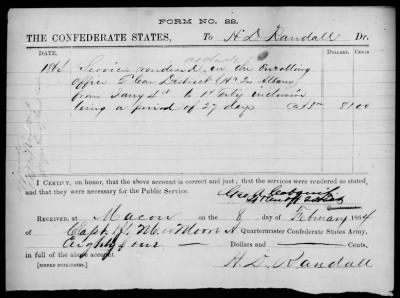 FORM NO. 22.
THE CONFEDERATE STATES, To H. D. Randall Dr.
DATE. DOLLARS. CENTS
1864 Service rendered in the Enrolling
Office 2d Con District Hd Qrs Albany
from Jany 4th to 1st Feby inclusive
being a period of 27 days at 3 81 00
I CERTIFY, on honor, that the above account is correct and just; that the services were rendered as stated,
and that they were necessary for the Public Service.
RECEIVED, at Macon on the 8 day of February 1864
of Capt.
Eighty one Dollars and Cents,
A Quartermaster Confederate States Army,
in full of the above account.
[SIGNED DUPLICATES.] H. D. Randall